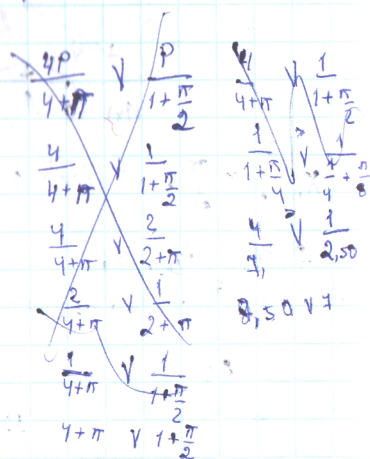 4P/(4+π) V P/(1+π/2)
4/(4+π) V 1/(1+π/2)
4/(4+π) V 2/(2+π)
2/(4+π) V 1/(2+π)
1/(4+π) V 1/(1+π/2)
4+π V 1+π/2
4/(4+π) V 1/(1+π/2)
1/(1+π/4) V 1/(1/4+π/8)
4/7, V 1/2,50
8,50 V 7